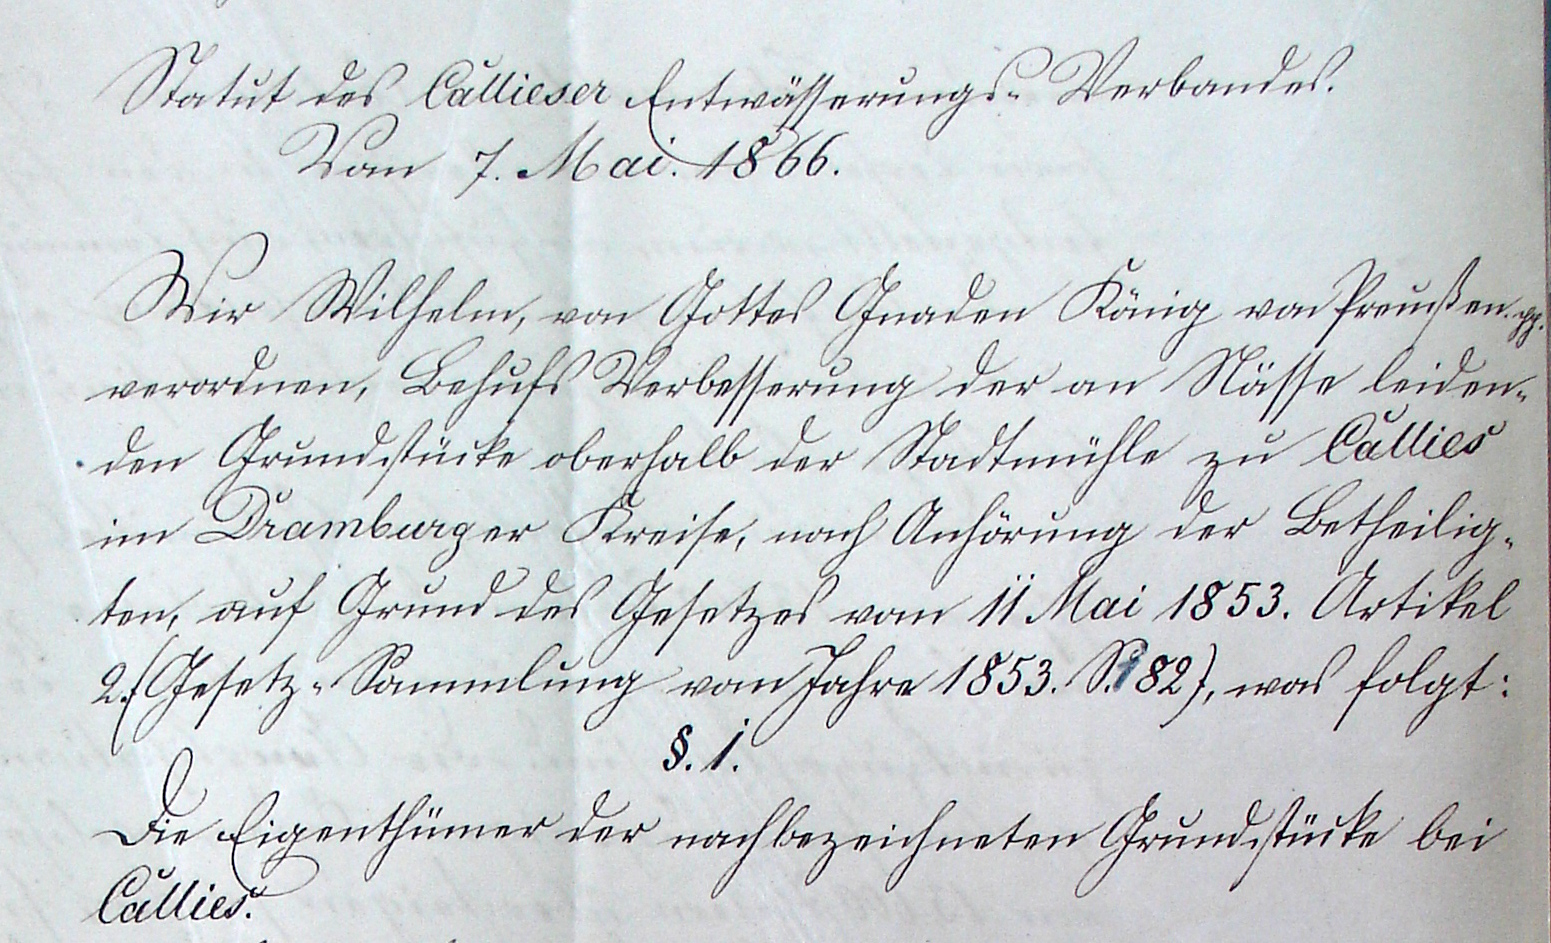 Statut des Callieser Entwässerungs-Verbandes.
Vom 7. Mai. 1866.
Wir Wilhelm, von Gottes Gnaden König von Preußen. pp.
verordnen, Behufs Verbesserung der an Nässe leiden-
den Grundstücke oberhalb der Stadtmühle zu Callies
im Dramburger Kreise, nach Anhörung der Betheilig-
ten, auf Grund des Gesetzes vom 11 Mai 1853. Artikel
2. (Gesetz-Sammlung vom Jahre 1853. S. 182), was folgt:
§. 1.
Die Eigenthümer der nachbezeichneten Grundstücke bei
Callies.